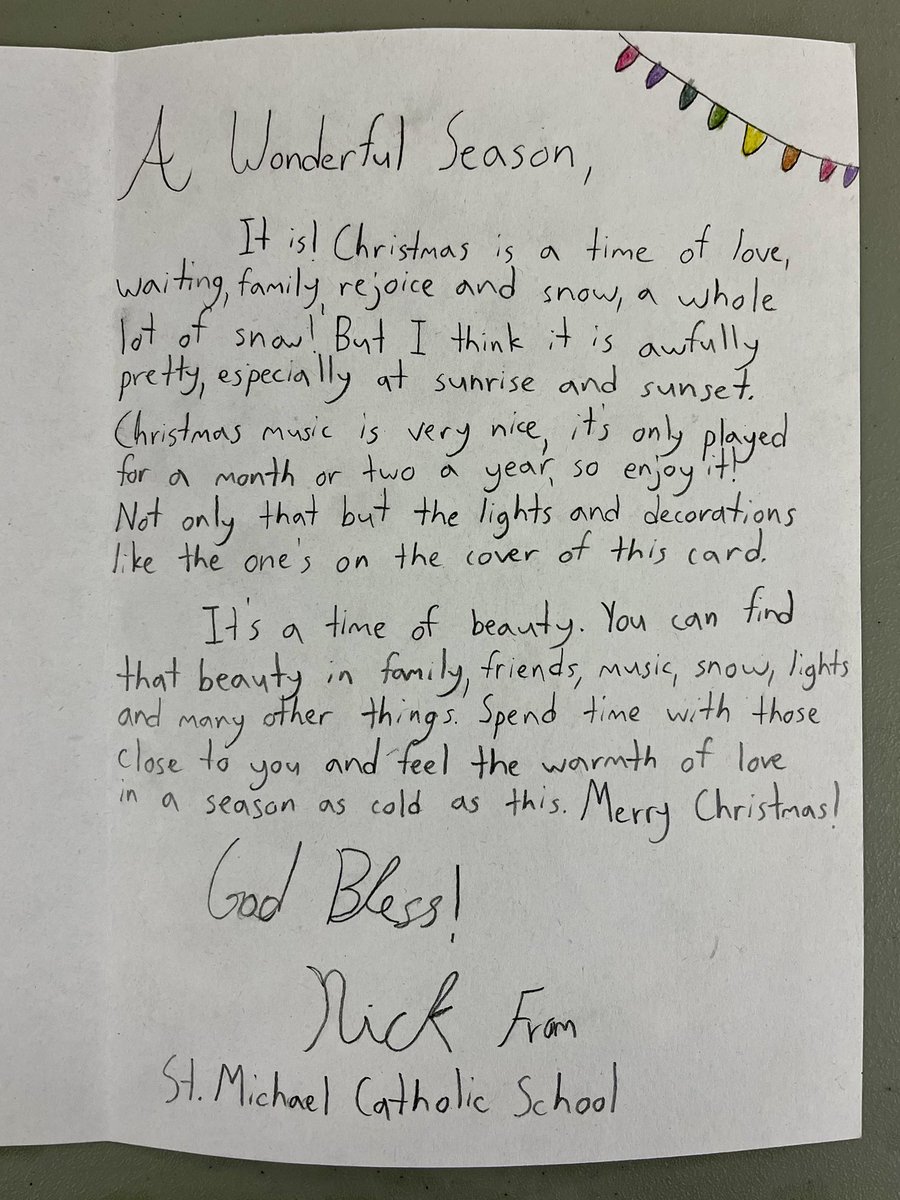 A Wonderful Season,
It is! Christmas is a time of love,
waiting, family, rejoice and snow, a whole
lot of snow! But I think it is awfully
pretty, especially at sunrise and sunset.
Christmas music is very nice, it's only played
for a month or two a year, so enjoy it!
Not only that but the lights and decorations
like the one's on the cover of this card.
It's a time of beauty. You can find
that beauty in family, friends, music, snow, lights
and many other things. Spend time with those
close to you and feel the warmth of love
in a season as cold as this. Merry Christmas!
God Bless!
Nick From
St. Michael Catholic School